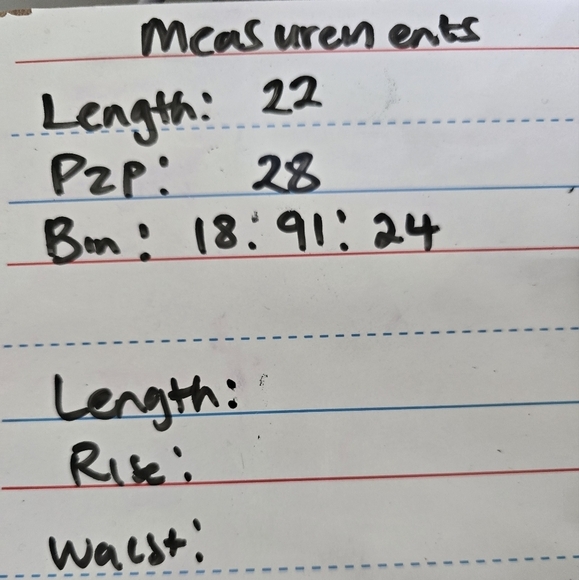 Measurements
Length: 22
P2P: 28
Bin: 18: 91: 24
Length:
Rise:
Waist: